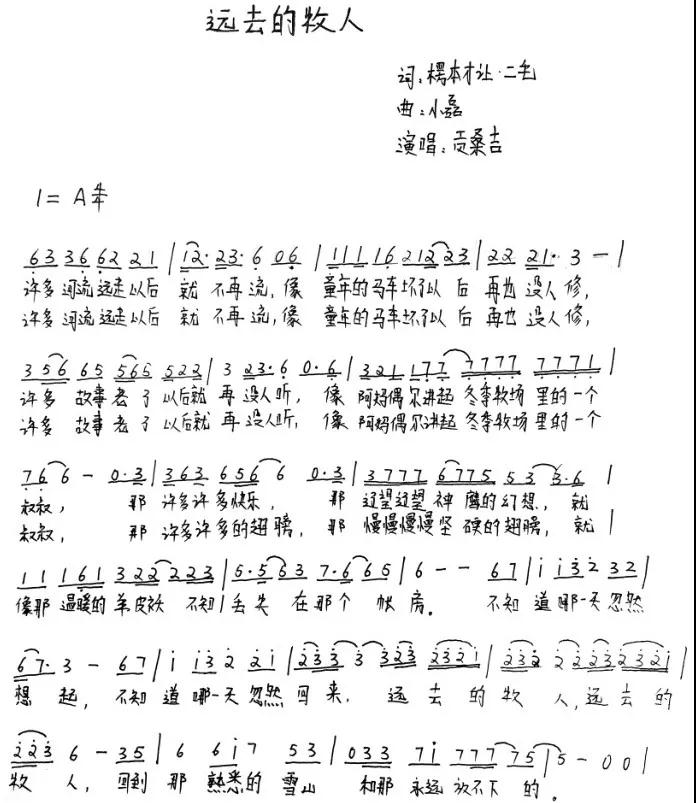 远去的牧人
词:楞本才让·二毛
曲:小磊
演唱:贡桑吉
1= A
63 36 62 21 | 12· 23· 6 06 | 111 16 212 23 | 22 21· 3 — |
许多 河流远走以后 就 不再流,像 童年的马车坏了以 后 再也 没人修,
许多 河流远走以后 就 不再流,像 童年的马车坏了以 后 再也 没人修,
356 65 565 522 | 3 23·6 0·6 | 321 177 7777 7771 |
许多 故事老了 以后就 再 没人听, 像 阿妈偶尔讲起 冬季牧场 里的一个
许多 故事老了 以后就 再 没人听, 像 阿妈偶尔讲起 冬季牧场 里的一个
76 6 - 0·3 | 363 656 6 0·3 | 3777 6775 53 3·6 |
叔叔, 那 许多许多快乐, 那 辽望辽望 神 鹰的幻想, 就
叔叔, 那 许多许多的翅膀, 那 慢慢慢慢坚 硬的翅膀, 就 |
11 161 322 223 | 5·563 7·665 | 6 - - 67 | i i3 2 32 |
像那 温暖的 羊皮袄 不知 丢失 在那个 帐房。 不知 道哪一天忽然
67· 3 - 67 | i i3 2 2i | 233 3 323 2321 | 232 2 2223 2321 |
想 起, 不知 道 哪一天 忽然 回来, 远 去 的 牧 人,远 去 的
223 6 - 35 | 6 6i7 53 | 033 7i 777 75 | 5 - 0 0 |
牧 人, 回到 那 熟悉的 雪山 和那 永远 放不下 的。